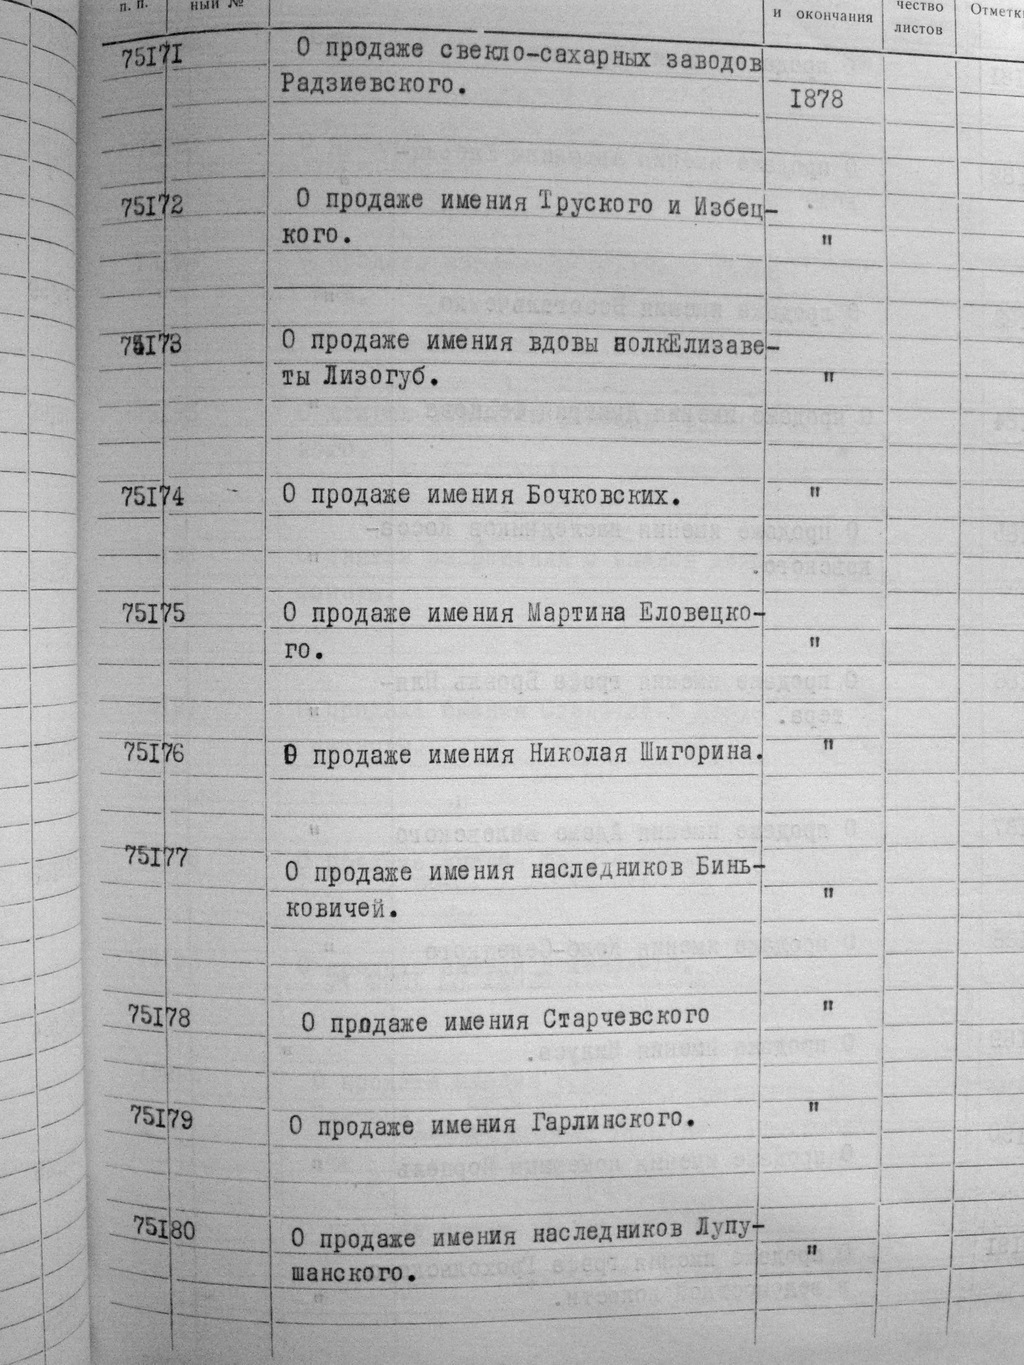 п. п.
ный №
и окончания
чество
листов
Отметки
75171 О продаже свекло-сахарных заводов
Радзиевского.
1878
75172 О продаже имения Труского и Избец-
кого. "
75173 О продаже имения вдовы полкЕлизаве-
ты Лизогуб. "
75174 О продаже имения Бочковских. "
75175 О продаже имения Мартина Еловецко-
го. "
75176 О продаже имения Николая Шигорина. "
75177
О продаже имения наследников Бинь-
ковичей. "
75178 О продаже имения Старчевского "
75179 О продаже имения Гарлинского. "
75180 О продаже имения наследников Лупу-
шанского. "